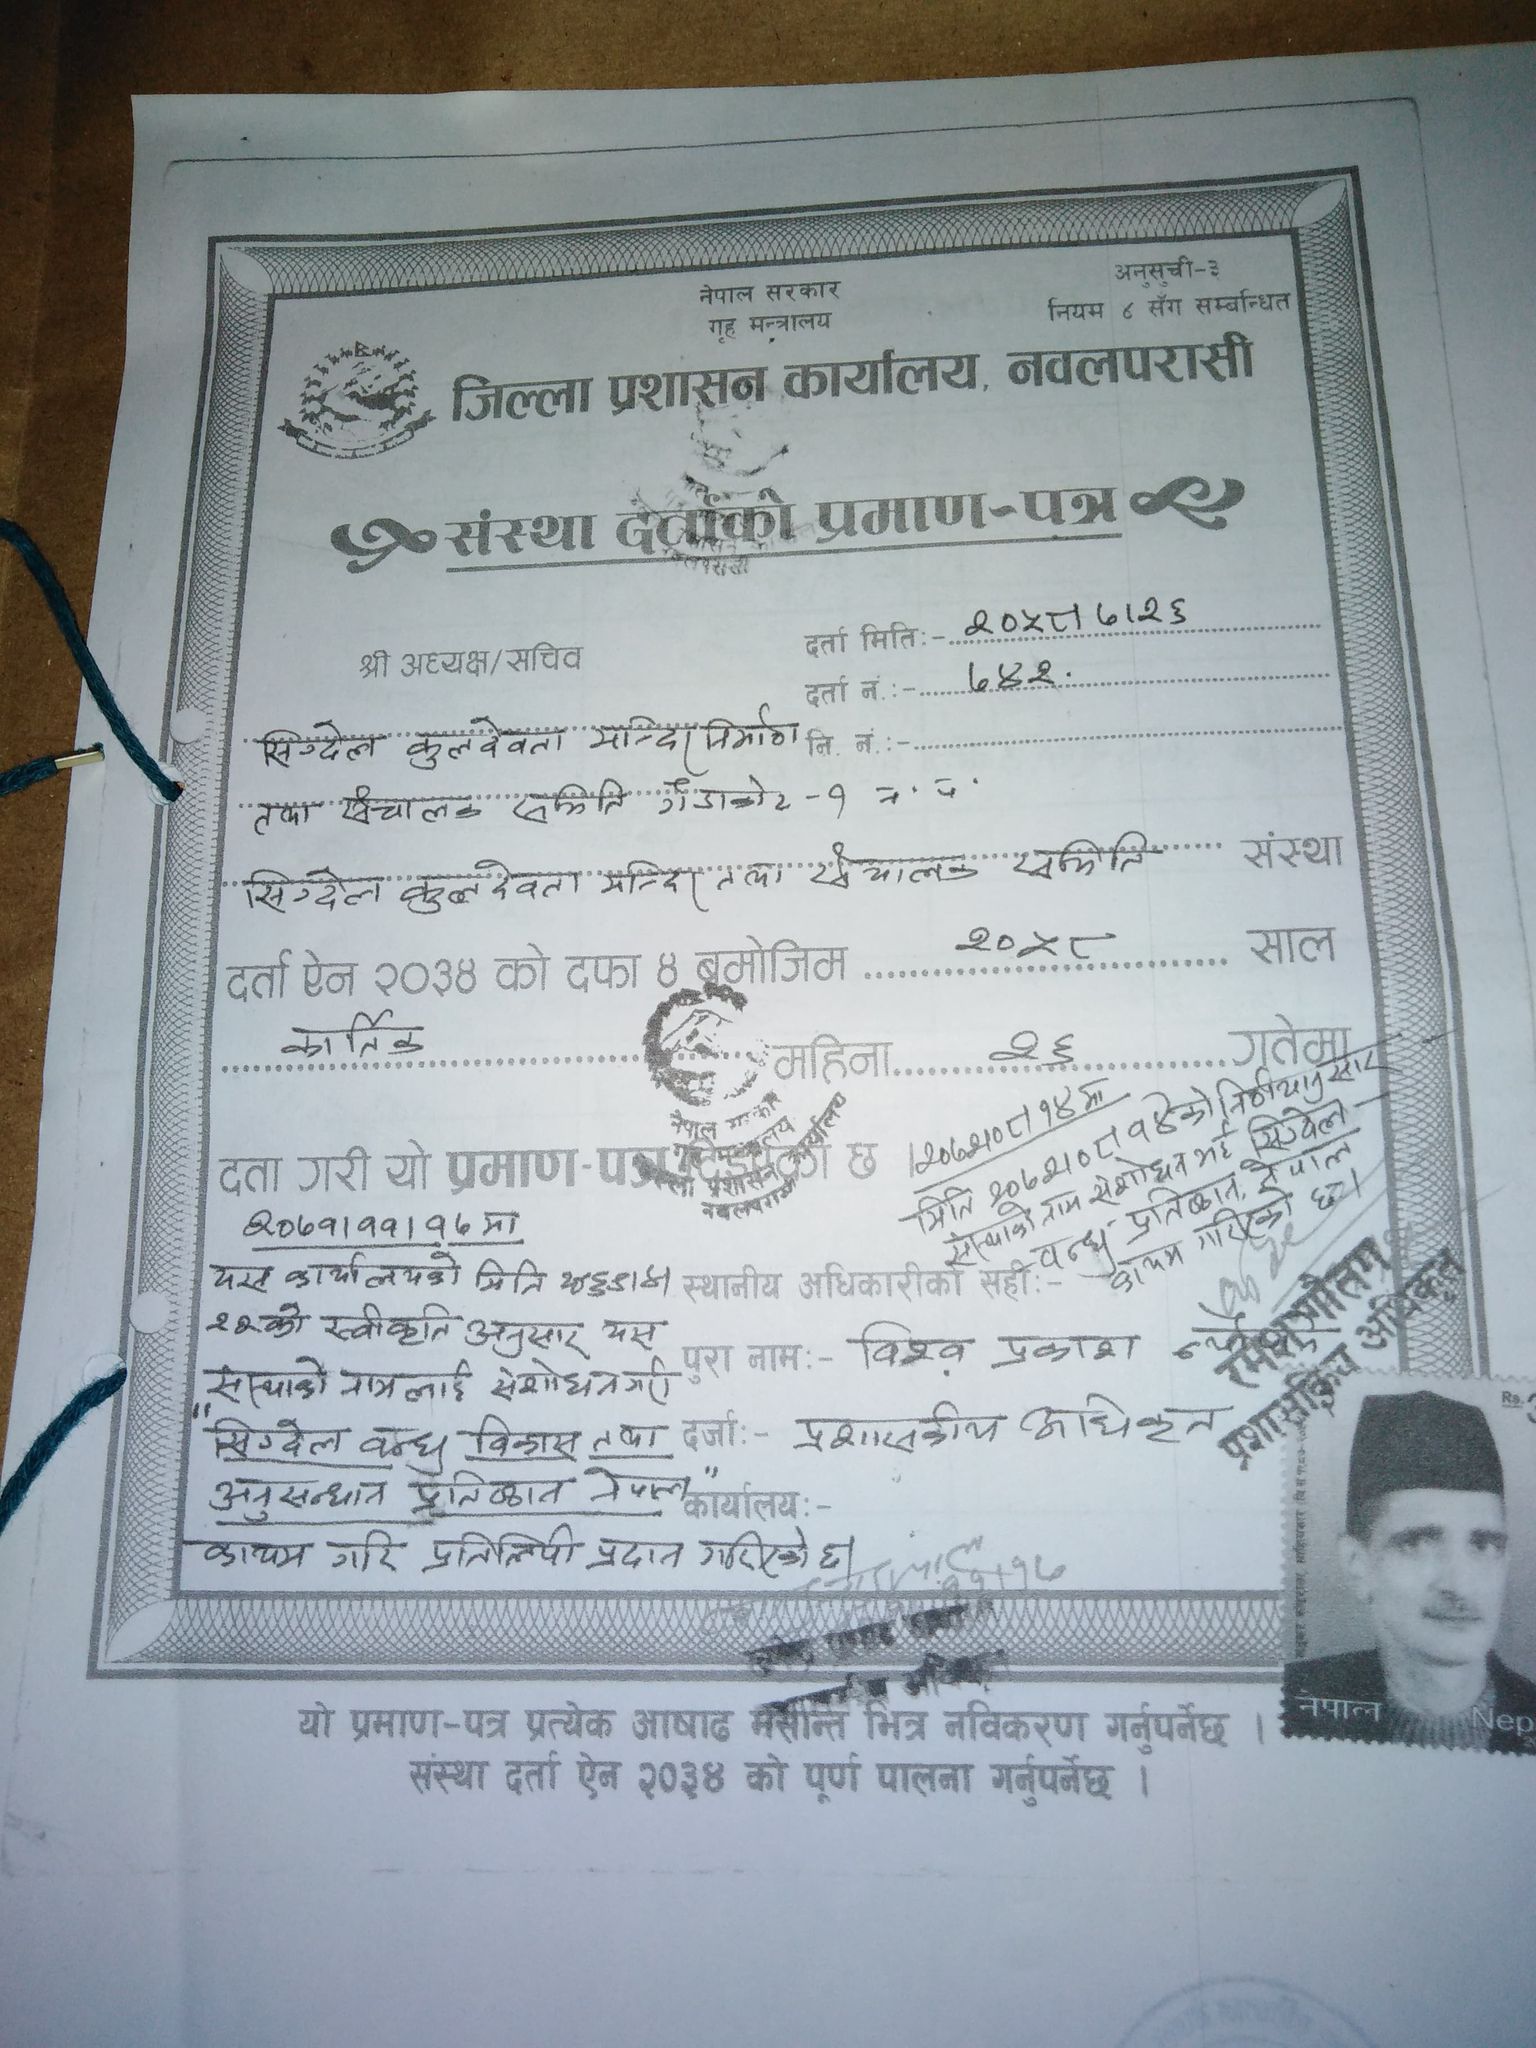 अनुसुची-३
नेपाल सरकार
नियम ४ सँग सम्बन्धित
गृह मन्त्रालय
जिल्ला प्रशासन कार्यालय, नवलपरासी
संस्था दर्ताको प्रमाण-पत्र
श्री अध्यक्ष/सचिव
दर्ता मिति:- २०५८।७।२६
दर्ता नं.:- ७४२.
नि. नं.:-
सिग्देल कुलदेवता मन्दिर निर्माण
तथा संचालक समिति गैंडाकोट-१ न. प.
सिग्देल कुलदेवता मन्दिर तथा संचालक समिति संस्था
दर्ता ऐन २०३४ को दफा ४ बमोजिम २०५८ साल
कार्तिक महिना २६ गतेमा
दर्ता गरी यो प्रमाण-पत्र दिईएको छ ।
२०७२।०८।१४मा
मिति २०७२।०८।१४ को निर्णयानुसार
संस्थाको नाम संशोधन भई सिग्देल
बन्धु प्रतिष्ठान, नेपाल
कायम गरिएको छ।
नेपाल सरकार
गृह मन्त्रालय
जिल्ला प्रशासन कार्यालय
नवलपरासी
२०७१।११।१७मा
यस कार्यालयको मिति
२२को स्वीकृति अनुसार यस
संस्थाको नामलाई संशोधन गरी
"सिग्देल बन्धु विकास तथा
अनुसन्धान प्रतिष्ठान नेपाल"
कायम गरि प्रतिलिपी प्रदान गरिएको छ।
स्थानीय अधिकारीको सही:-
पुरा नाम:- विश्व प्रकाश
दर्जा:- प्रशासकीय अधिकृत
कार्यालय:-
गौतम
प्रशासकिय अधिकृत
नेपाल
Rs.
Nep
यो प्रमाण-पत्र प्रत्येक आषाढ मसान्त भित्र नविकरण गर्नुपर्नेछ ।
संस्था दर्ता ऐन २०३४ को पूर्ण पालना गर्नुपर्नेछ ।